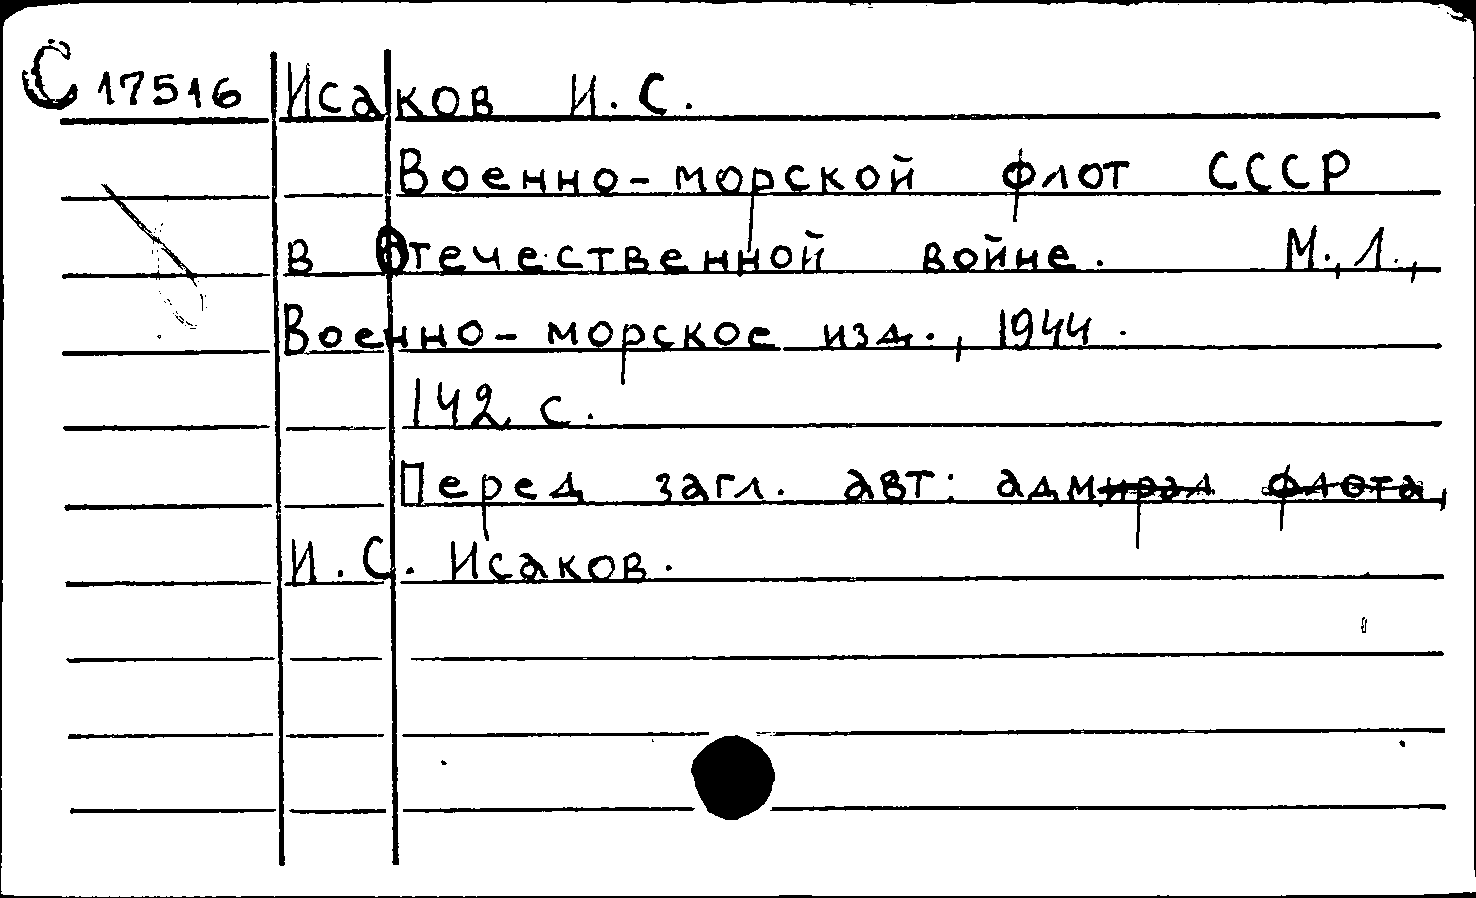 С 17516 Исаков И. С.
Военно-морской флот СССР
в Отечественной войне. М., Л.,
Военно-морское изд., 1944.
142 с.
Перед загл. авт: адмирал флота,
И. С. Исаков.